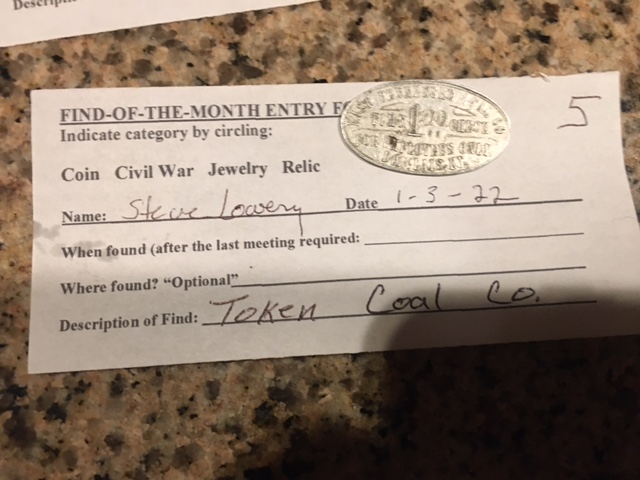 Descripti
FIND-OF-THE-MONTH ENTRY FO
5
Indicate category by circling:
Coin Civil War Jewelry Relic
Name: Steve Lowery Date 1-3-22
When found (after the last meeting required:
Where found? "Optional"
Description of Find: Token Coal Co.